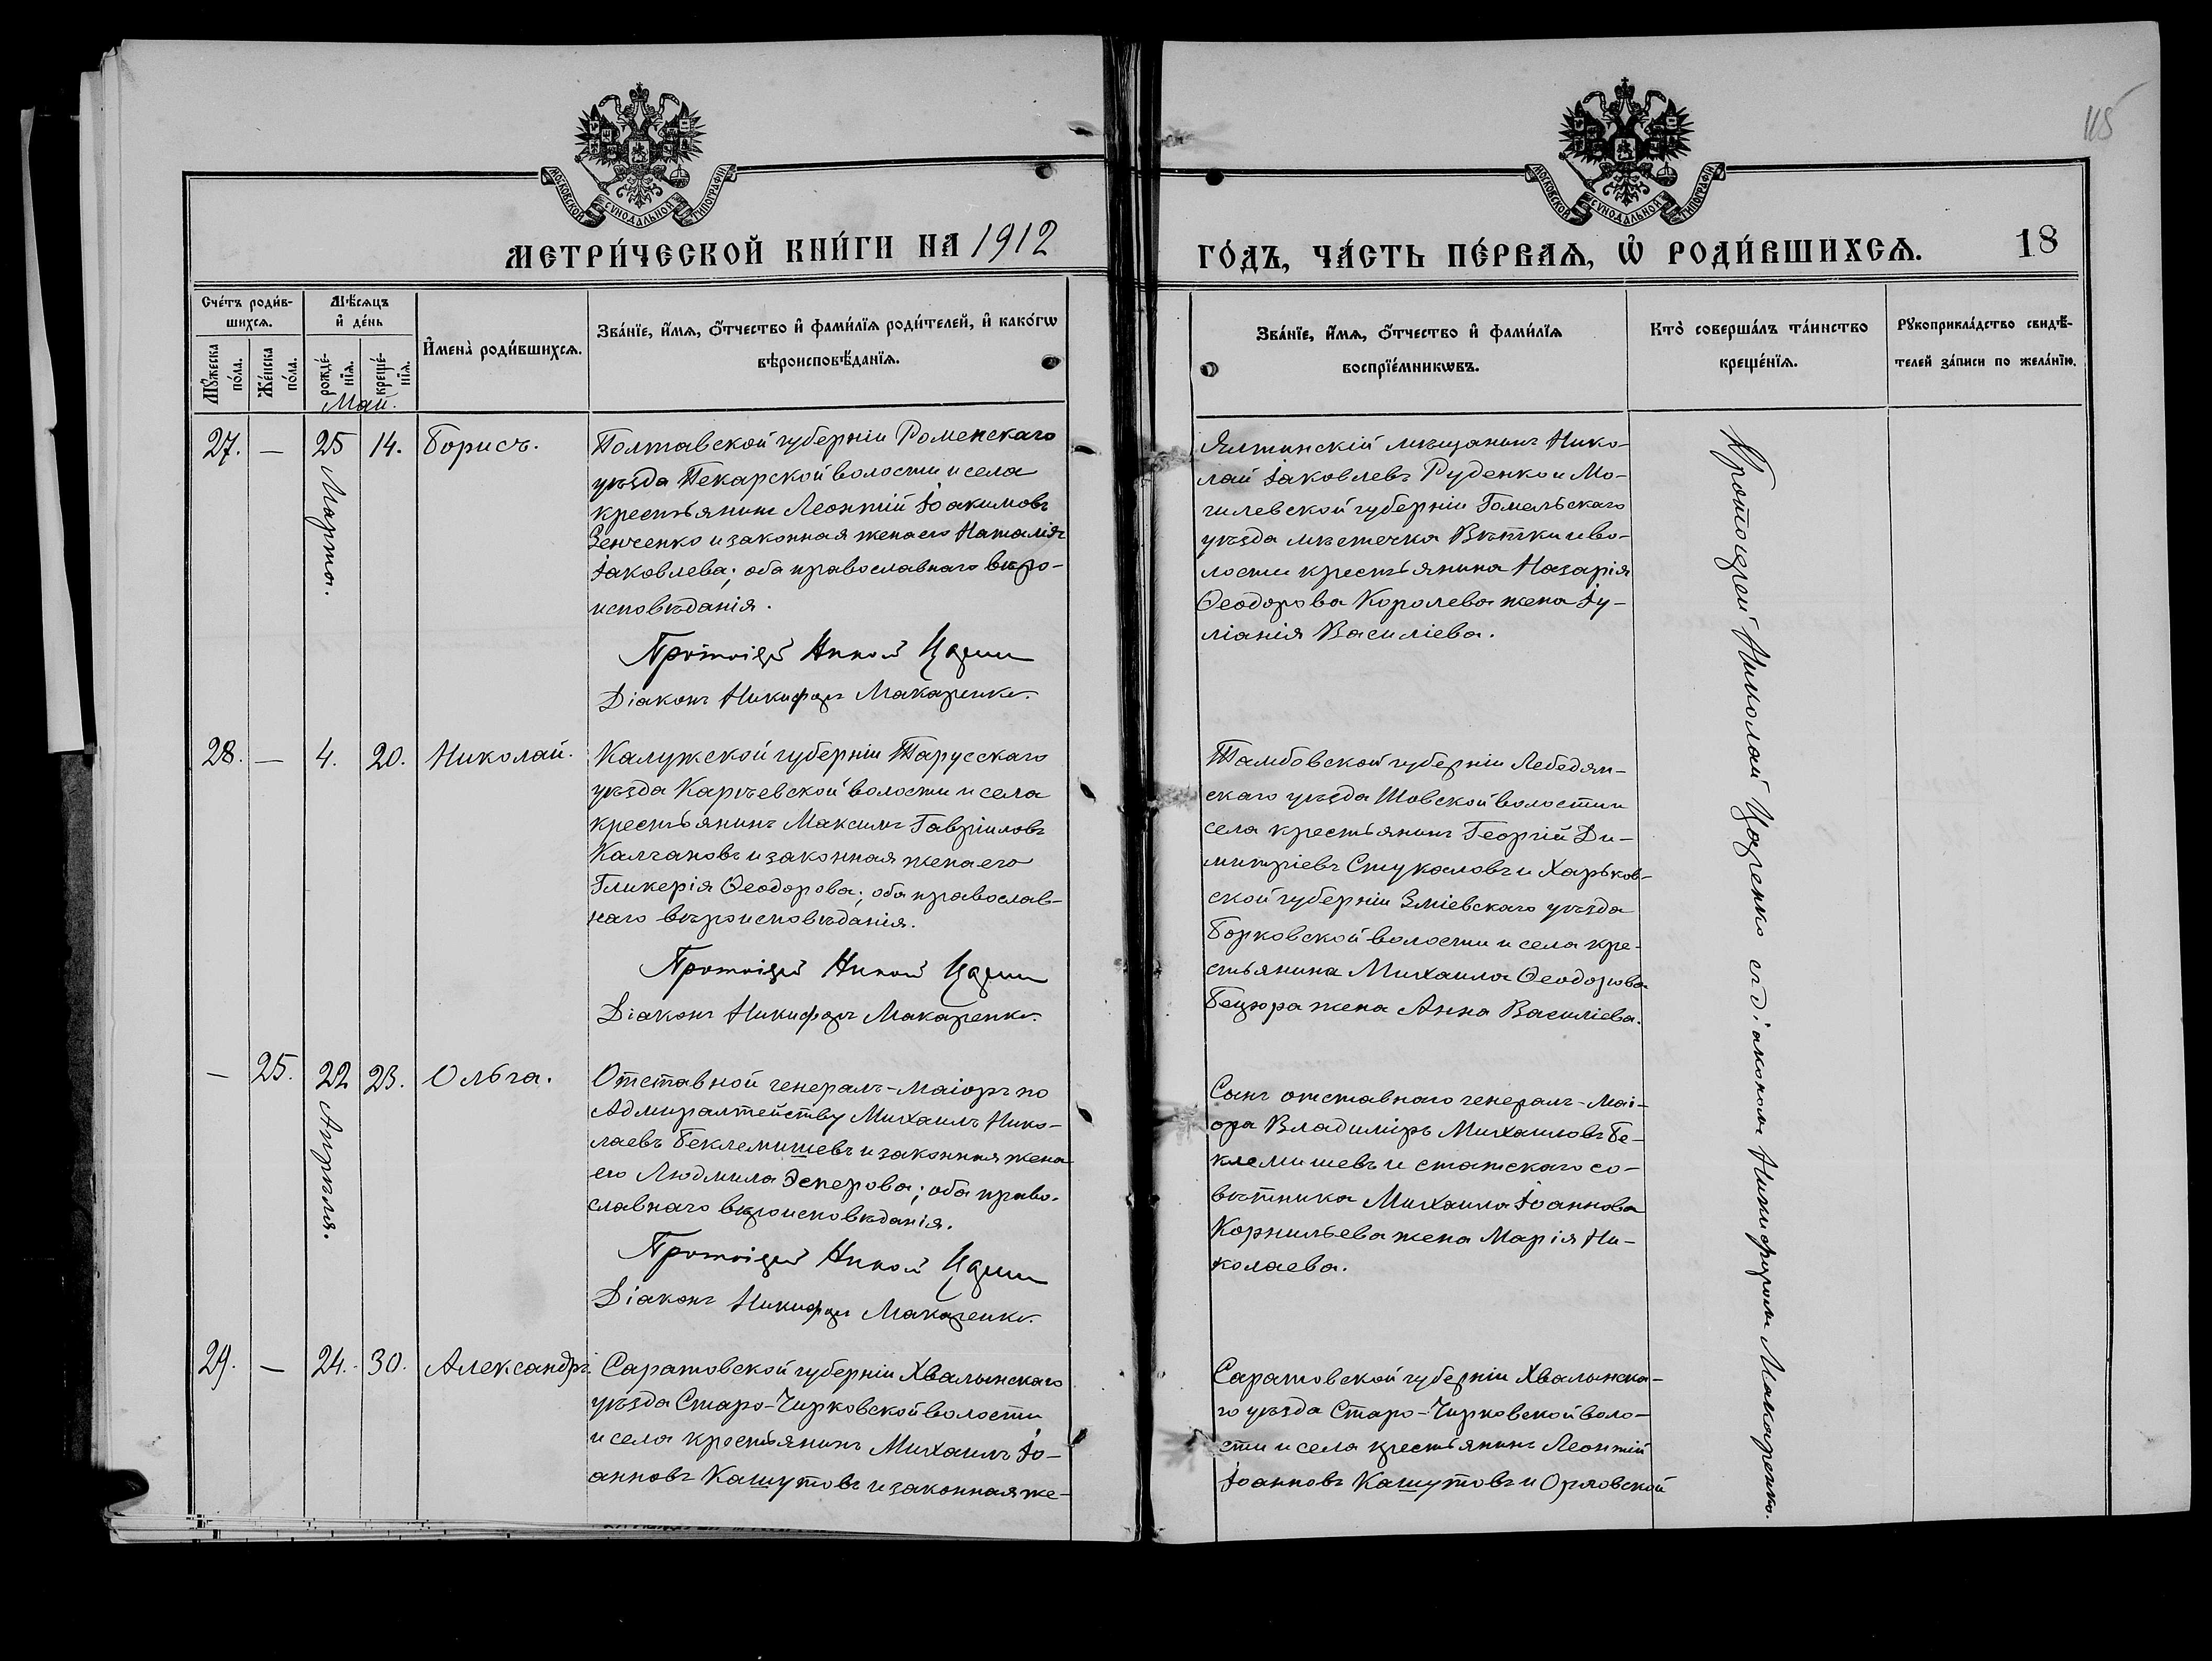 115
МОСКОВСКОЙ СѴНОДАЛЬНОЙ ТИПОГРАФІИ
МОСКОВСКОЙ СѴНОДАЛЬНОЙ ТИПОГРАФІИ
МЕТРИ́ЧЕСКОЙ КНИ́ГИ НА 1912
ГО́ДЪ, ЧА́СТЬ ПЕ́РВАѦ, Ѡ҆ РОДИ́ВШИХСѦ.
18
Сче́тъ роди́в-
шихсѧ.
Мѣ́сѧцъ
и҆ де́нь
Мꙋ́жеска
по́ла.
Же́нска
по́ла.
рожде́-
нїѧ.
креще́-
нїѧ.
И҆мена̀ роди́вшихсѧ.
Зва́нїе, и҆́мѧ, ѻ҆́тчество и҆ фами́лїѧ роди́телей, и҆ како́гѡ
вѣроисповѣ́данїѧ.
Зва́нїе, и҆́мѧ, ѻ҆́тчество и҆ фами́лїѧ
воспрїе́мникѡвъ.
Кто̀ соверша́лъ та́инство
креще́нїѧ.
Рꙋкоприкла́дство свидѣ́-
телей за́писи по жела́нїю.
Май.
27.
—
25
Марта.
14.
Борисъ.
Полтавской губерніи Роменскаго
уѣзда Пекарской волости и села
крестьянинъ Леонтій Іоакимовъ
Зенченко и законная жена его Наталія
Іаковлева; оба православнаго вѣро-
исповѣданія.
Протоіерей Николай Царенко
Діаконъ Никифоръ Макаренко.
Ялтинскій мѣщанинъ Нико-
лай Іаковлевъ Руденко и Мо-
гилевской губерніи Гомельскаго
уѣзда мѣстечка Вѣтки и во-
лости крестьянина Назарія
Ѳеодорова Королева жена Іу-
ліанія Василіева.
Протоіерей Николай Царенко съ діакономъ Никифоромъ Макаренко.
28.
—
4.
20.
Николай.
Калужской губерніи Тарусскаго
уѣзда Карчевской волости и села
крестьянинъ Максимъ Гавріиловъ
Калгановъ и законная жена его
Гликерія Ѳеодорова; оба православ-
наго вѣроисповѣданія.
Протоіерей Николай Царенко
Діаконъ Никифоръ Макаренко.
Тамбовской губерніи Лебедян-
скаго уѣзда Шовской волости и
села крестьянинъ Георгій Ди-
митріевъ Стукаловъ и Харьков-
ской губерніи Зміевскаго уѣзда
Борковской волости и села кре-
стьянина Михаила Ѳеодорова
Бецюра жена Анна Василіева.
—
25.
22
Апрѣля.
23.
Ольга.
Отставной генералъ-маіоръ по
Адмиралтейству Михаилъ Нико-
лаевъ Беклемишевъ и законная жена
его Людмила Эсперова; оба право-
славнаго вѣроисповѣданія.
Протоіерей Николай Царенко
Діаконъ Никифоръ Макаренко.
Сынъ отставного генералъ-маі-
ора Владиміръ Михаиловъ Бе-
клемишевъ и статскаго со-
вѣтника Михаила Іоаннова
Корнильева жена Марія Ни-
колаева.
29.
—
24.
30.
Александръ.
Саратовской губерніи Хвалынскаго
уѣзда Старо-Чирковской волости
и села крестьянинъ Михаилъ Іо-
анновъ Кашутовъ и законная же-
Саратовской губерніи Хвалынска-
го уѣзда Старо-Чирковской воло-
сти и села крестьянинъ Леонтій
Іоанновъ Кашутовъ и Орловской